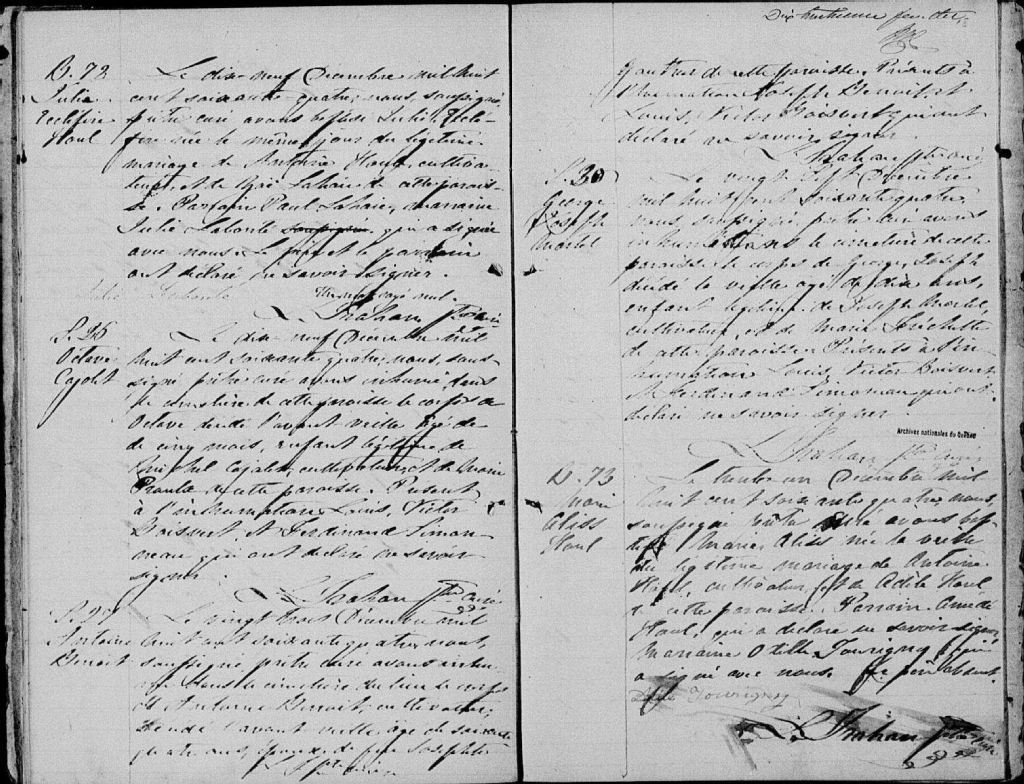 B. 72
Julie
Houl
Le dix-neuf Décembre mil huit
cent soixante quatre, nous, soussigné
prêtre curé avons baptisé Julie
née le même jour du légitime
mariage de Antoine Houl, cultiva-
teur, et de Zoë Lahaie de cette parois-
se. Parrain Paul Lahaie, marraine
Julie Labonté qui a signé
avec nous. Le père et le parrain
ont déclaré ne savoir signer.
Julie Labonté
mot rayé nul.
Trahan Ptre curé
S. 26
Octave
Cajolet
Le dix-neuf Décembre mil
huit cent soixante quatre, nous, sous-
signé prêtre curé avons inhumé dans
le cimetière de cette paroisse le corps de
Octave décédé l'avant veille âgé de
de cinq mois, enfant légitime de
Cajolet, cultivateur, et de Marie
de cette paroisse. Présents
à l'inhumation Louis, Victor
Boisvert, et Ferdinand Simon-
neau qui ont déclaré ne savoir
signer.
Trahan Ptre curé
Antoine
Benoit
Le vingt trois Décembre mil
huit cent soixante quatre, nous,
soussigné, prêtre curé avons inhu-
mé dans le cimetière du lieu le corps
d'Antoine Benoit, cultivateur,
décédé l'avant veille, âgé de soixante
quatre ans, époux de feue Josephte
Ptre curé
Dix huitième
de cette paroisse. Présents à
l'inhumation Joseph Benoit et
Louis, Victor Boisvert qui ont
déclaré ne savoir signer.
Trahan Ptre curé
S. 30
George
Joseph
Martel
Le vingt sept Décembre
mil huit cent soixante quatre
nous soussigné prêtre curé avons
inhumé dans le cimetière de cette
paroisse le corps de George, Joseph
décédé la veille âgé de dix ans,
enfant légitime de Joseph Martel,
cultivateur, et de Marie Fréchette
de cette paroisse. Présents à l'in-
humation Louis, Victor Boisvert
et Ferdinand Simoneau qui ont
déclaré ne savoir signer.
Archives nationales du Québec
Trahan Ptre curé
B. 73
Marie
Aliss
Houl
Le trente un Décembre mil
huit cent soixante quatre, nous,
soussigné prêtre curé avons bap-
tisé Marie Aliss née la veille
du légitime mariage de Antoine
Houl, cultivateur, et de Adèle Houl
de cette paroisse. Parrain
Houl, qui a déclaré ne savoir signer,
marraine Otille Tourigny qui
a signé avec nous. Le père absent.
Tourigny
Trahan Ptre curé